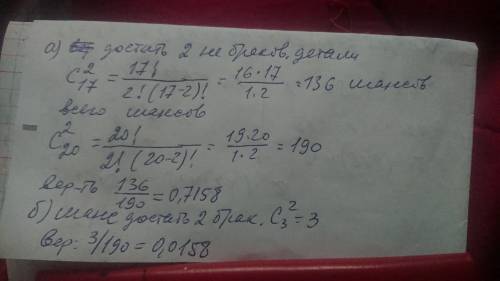 а) достать 2 не браков. детали
C₁₇² = 17! / 2!(17-2)! = 16·17 / 1·2 = 136 шансов
всего шансов
C₂₀² = 20! / 2!(20-2)! = 19·20 / 1·2 = 190
вер-ть 136/190 = 0,7158
б) шанс достать 2 брак. C₃² = 3
Вер: 3/190 = 0,0158